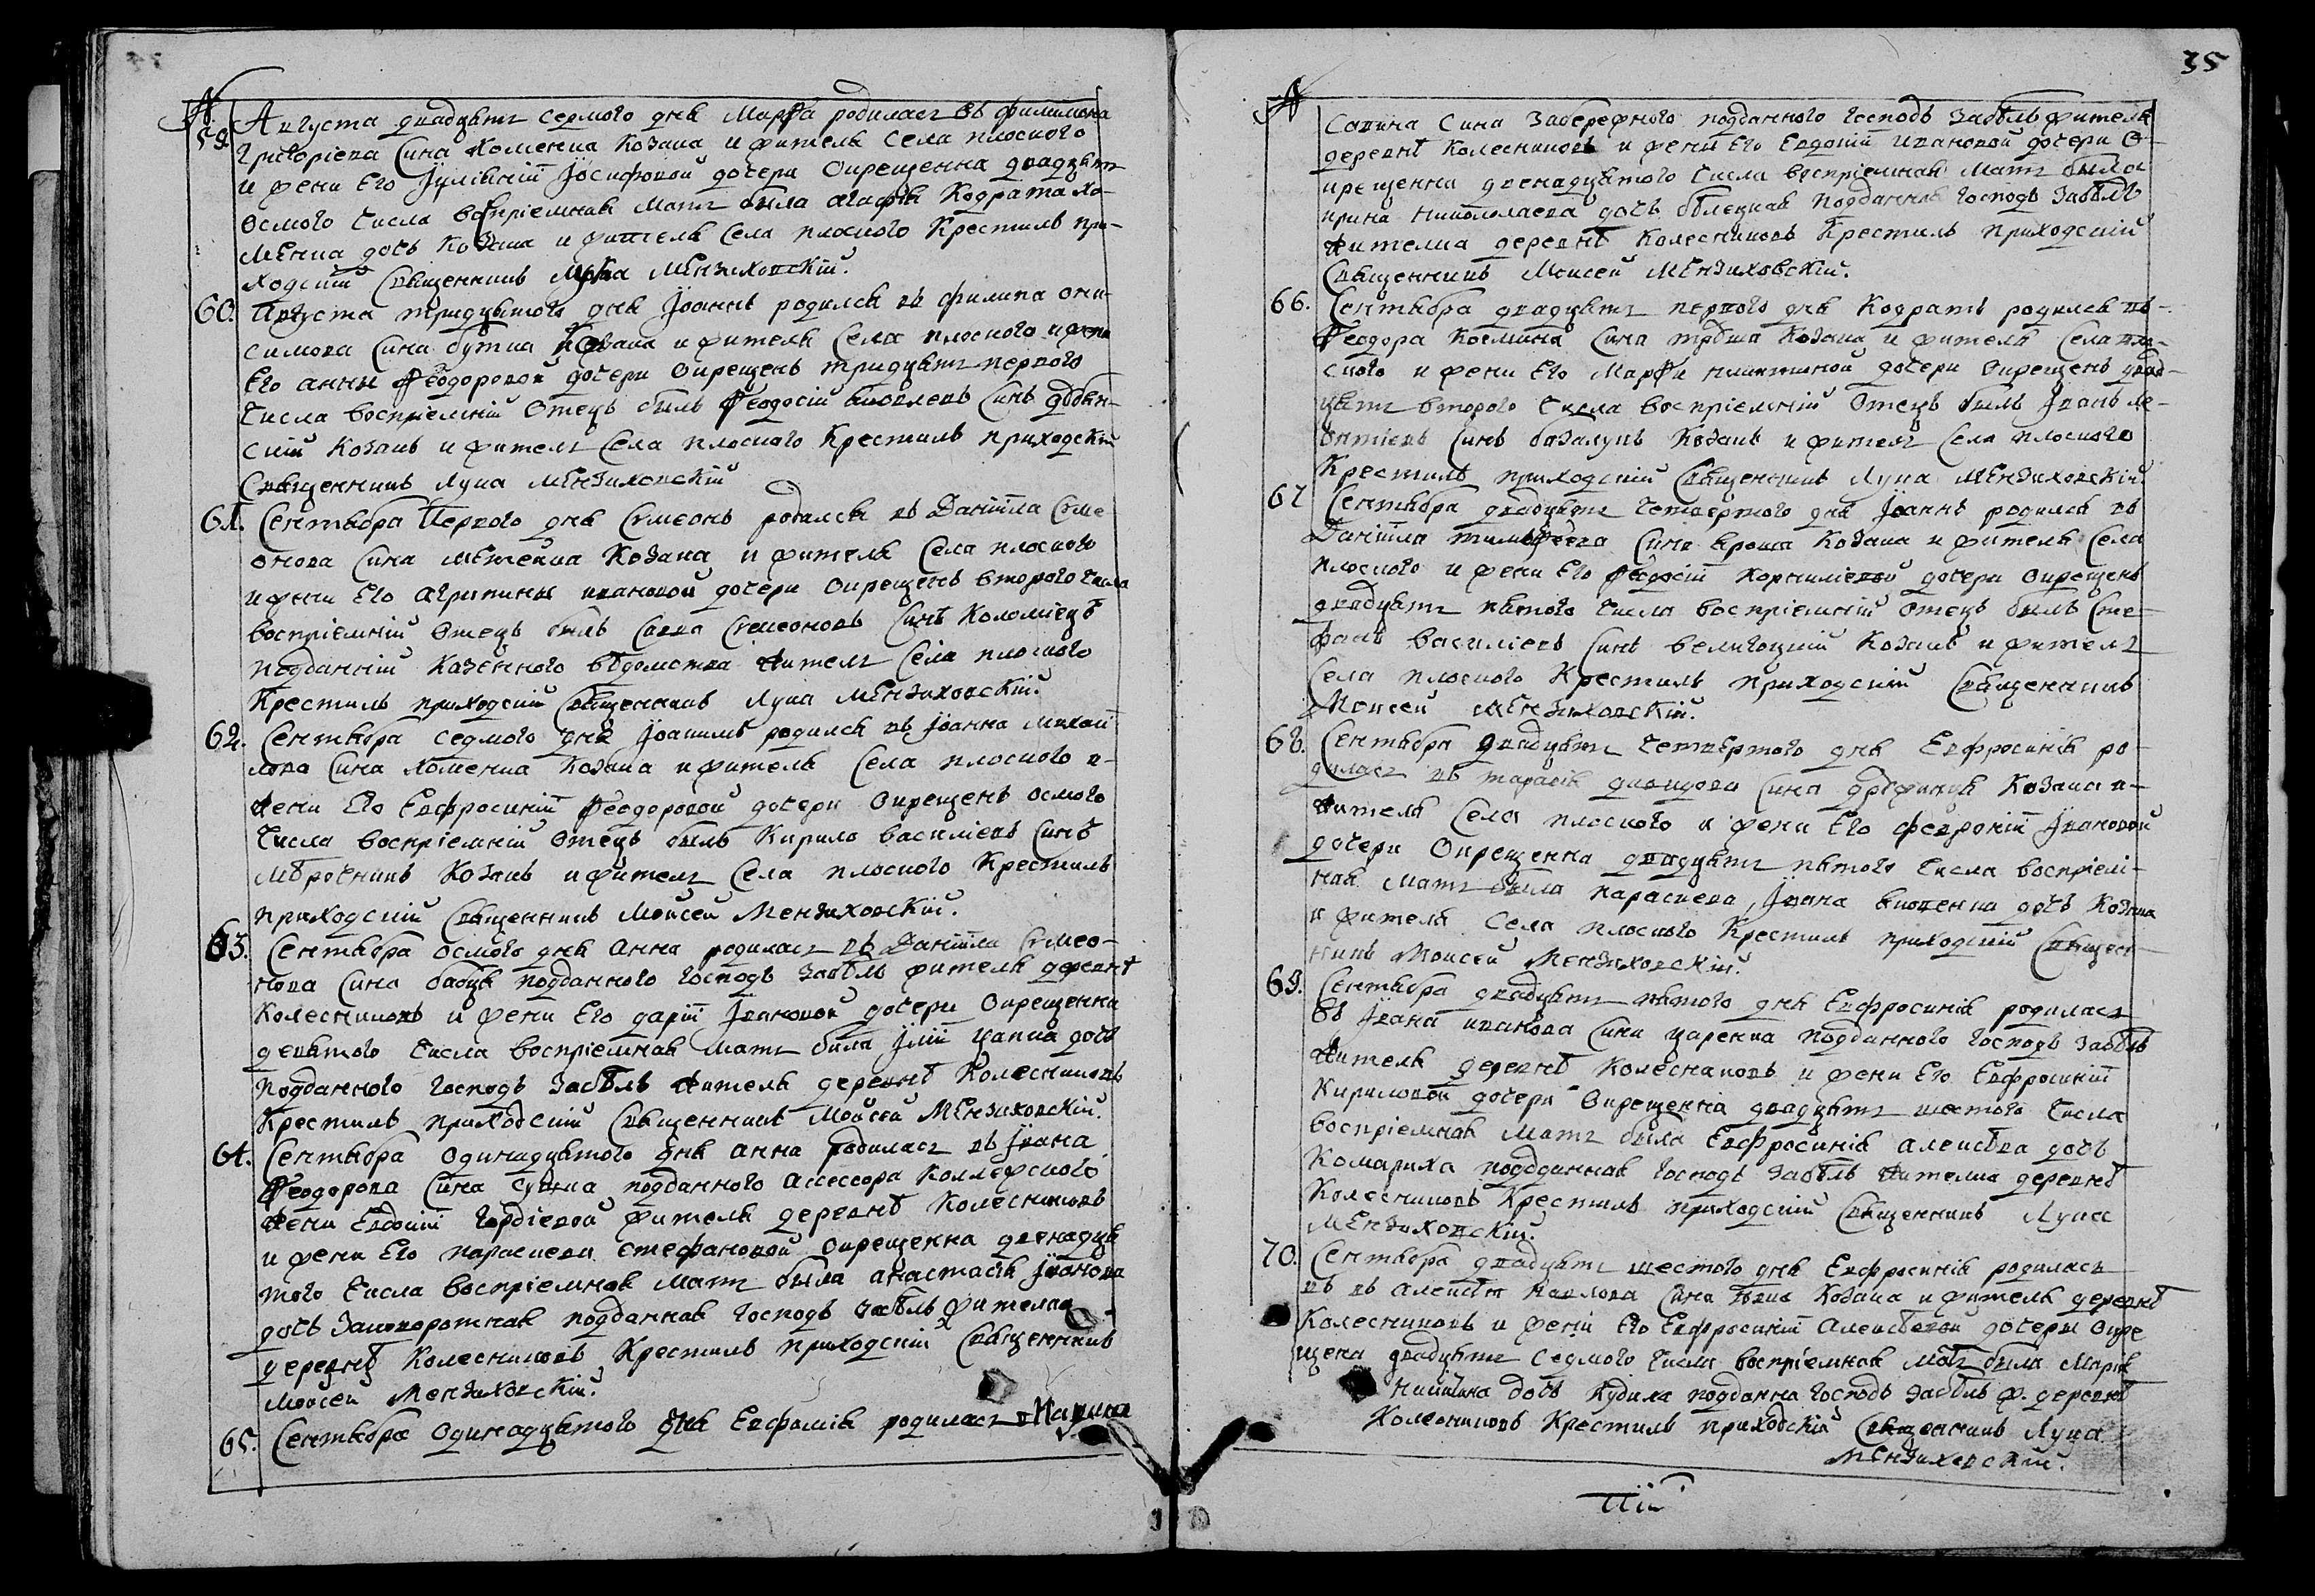 №
59. Августа двадцять седмого дня Марѳа родилась въ филимона
григоріева сина хоменка козака и жителя села плоского
и жени его Іуліяніи Іосифовой дочери окрещенна двадцять
осмого числа воспріемная мать была агафія Кодрата хо-
менка дочь козака и жителя села плоского Крестилъ при-
ходскій священникъ Лука Мензиховскій.
60. Августа тридцятого дня Іоаннъ родился въ филипа они-
симова сина бутка козака и жителя села плоского и жени
его анны Ѳеодоровой дочери окрещенъ тридцять первого
числа воспріемній отецъ былъ Ѳеодосій яковлевъ синъ
скій козакъ и житель села плоского Крестилъ приходскій
священникъ Лука Мензиховскій
61. Сентября Первого дня Сѵмеонъ родился въ Даніила Сѵме
онова сина метейка козака и жителя села плоского
и жени его агрипины ивановой дочери окрещенъ второго числа
воспріемній отецъ былъ савва Сѵмеоновъ синъ Коломіецъ
подданній казенного вѣдомства житель села плоского
Крестилъ приходскій священникъ Лука Мензиховскій.
62. Сентября седмого дня Іоакимъ родился въ Іоанна михаи-
лова сина хоменка козака и жителя села плоского и
жени его Евфросиніи Ѳеодоровой дочери окрещенъ осмого
числа воспріемній отецъ былъ Кирило василіевъ синъ
мѣрочникъ козакъ и житель села плоского Крестилъ
приходскій священникъ Моисей Мензиховскій.
63. Сентября осмого дня анна родилась въ Даніила Сѵмео-
нова сина бабця подданного господъ забѣлъ жителя деревнѣ
Колесниковъ и жени его даріи Івановой дочери окрещенна
девятого числа воспріемная мать была цапка дочь
подданного господъ забѣлъ жителя деревнѣ Колесниковъ
Крестилъ приходскій священникъ Моисей Мензиховскій.
64. Сентября одинадцятого дня анна родилась въ Івана
Ѳеодорова сина подданного ассессора коллежского
жени Евдокіи гордіевой жителя деревнѣ Колесниковъ
и жени его параскеви стефановой окрещенна двенадця
того числа воспріемная мать была анастасія Іванова
дочь зановоротная подданная господъ забѣлъ жителка
деревнѣ Колесниковъ Крестилъ приходскій священникъ
Моисей Мензиховскій.
65. Сентября одинадцятого дня Евфимія родилась в
35
№
савина сина забережного подданного господъ забѣлъ жителя
деревнѣ Колесниковъ и жени его Евдокіи ивановой дочери о-
крещенна двенадцятого числа воспріемная мать была
ирина николаева дочь подданная господъ забѣлъ
жителка деревнѣ Колесниковъ Крестилъ приходскій
священникъ Моисей Мензиховскій.
66. Сентября двадцять первого дня Кодратъ родился въ
Ѳеодора Космина сина козака и жителя села пло-
ского и жени его Марѳи никитиной дочери окрещенъ двад-
цять второго числа воспріемній отецъ былъ Іванъ ле-
онтіевъ синъ базалукъ козакъ и житель села плоского
Крестилъ приходскій священникъ Лука Мензиховскій.
67 Сентября двадцять четвертого дня Іоаннъ родился въ
Даніила тимоѳеева сина яроша козака и жителя села
плоского и жени его Ѳедосіи корниліевой дочери окрещенъ
двадцять пятого числа воспріемній отецъ былъ сте-
фанъ василіевъ синъ величоцкій козакъ и житель
села плоского Крестилъ приходскій священникъ
Моисей Мензиховскій.
68. Сентября двадцять четвертого дня Евфросинія ро-
дилась въ тарасія сина козака и
жителя села плоского и жени его февроніи Івановой
дочери окрещенна двадцять пятого числа воспріем-
ная мать была параскева, Івана яковенка дочь козака
и жителя села плоского Крестилъ приходскій священ-
никъ Моисей Мензиховскій.
69. Сентября двадцять пятого дня Евфросинія родилась
въ Івана иванова сина царенка подданного господъ забѣлъ
жителя деревнѣ Колесниковъ и жени его Евфросиніи
Кириловой дочери окрещенна двадцять шестого числа
воспріемная мать была Евфросинія алексѣева дочь
Комариха подданная господъ забѣлъ жителка деревнѣ
Колесниковъ Крестилъ приходскій священникъ Лука
Мензиховскій.
70. Сентября двадцять шестого дня Евфросинія родилась
въ въ алексѣя павлова сина козака и жителя деревнѣ
Колесниковъ и жени его Евфросиніи алексѣевой дочери окре
щена двадцять седмого числа воспріемная мать была Марія
никитина дочь кудила подданна господъ забѣлъ ж. деревнѣ
Колесниковъ Крестилъ приходскій священникъ Лука
Мензиховскій.